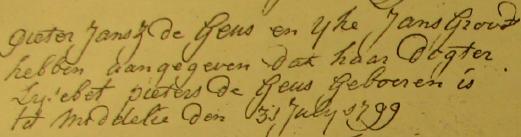 pieter Jansz de Geus en yke Jans Groot
hebben aangegeven dat haar dogter
Lysebet pieters de Geus Geboeren is
tot Middelie den 31 July 1799